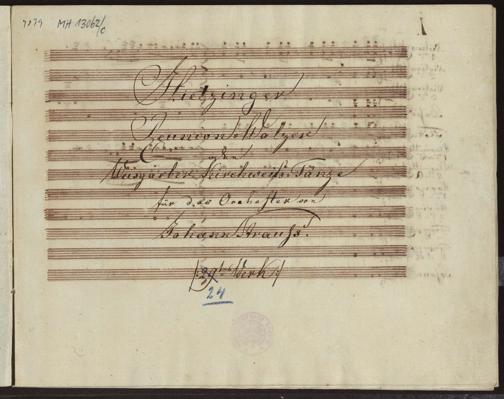 7079 MH 13062/c
Hietzinger
Reunion Walzer
oder
Weisgärber Kirchweih-Tänze
für das Orchester von
Johann Strauss.
24